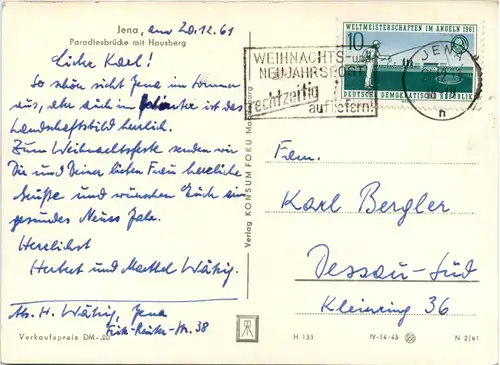 Jena, am 20.12.61
Paradiesbrücke mit Hausberg
Lieber Karl!
So schön sieht Jena im Sommer
aus, aber auch im Winter ist das
Landschaftsbild herrlich.
Zum Weihnachtsfeste senden wir
Dir und Deiner lieben Frau herzliche
Grüße und wünschen Euch ein
gesundes Neues Jahr.
Herzlichst
Herbert und
Abs. H. Jena
Fritz-Reuter-Str. 38
Verkaufspreis DM -20
Verlag KONSUM FOKU Magdeburg
WEIHNACHTS- u.
NEUJAHRSPOST
rechtzeitig
aufliefern!
WELTMEISTERSCHAFTEN IM ANGELN 1961
10
DEUTSCHE DEMOKRATISCHE REPUBLIK
JENA
n
Fam.
Karl Bergler
Dessau-Süd
Kleinring 36
H 133
IV-14-45
N 2/61